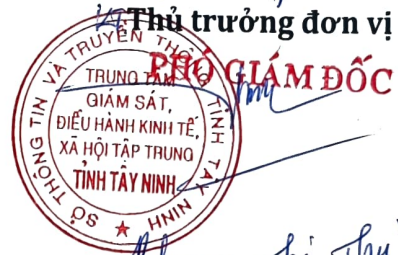 KT Thủ trưởng đơn vị
PHÓ GIÁM ĐỐC
SỞ THÔNG TIN VÀ TRUYỀN THÔNG TỈNH TÂY NINH
TRUNG TÂM
GIÁM SÁT,
ĐIỀU HÀNH KINH TẾ,
XÃ HỘI TẬP TRUNG
TỈNH TÂY NINH